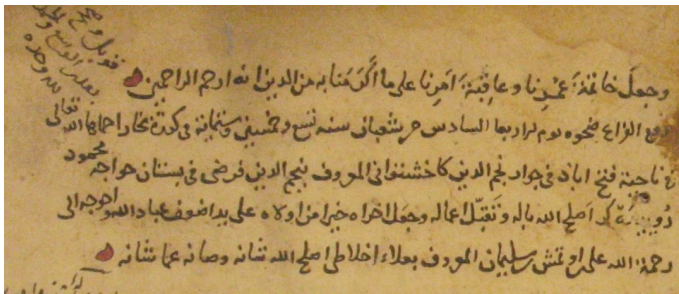 وجعل خاتمة عمرنا وعاقبة امرنا على ما اكرمنا به من الدين انه ارحم الراحمين
وقع الفراغ ضحوة يوم الاربعا السادس من شعبان سنة تسع وخمسين وستمائة في كورة بخارا حماها الله تعالى
في ناحية فتح اباد في جوار نجم الدين المعروف بنجم الدين فرضى في بستان خواجه محمود
اصلح الله باله وتقبل اعماله وجعل اخراه خيرا من اولاه على يد اضعف عباد الله واحوجه الى
رحمة الله على بن سليمان المعروف بعلاء اخلاطى اصلح الله شانه وصانه عما شانه